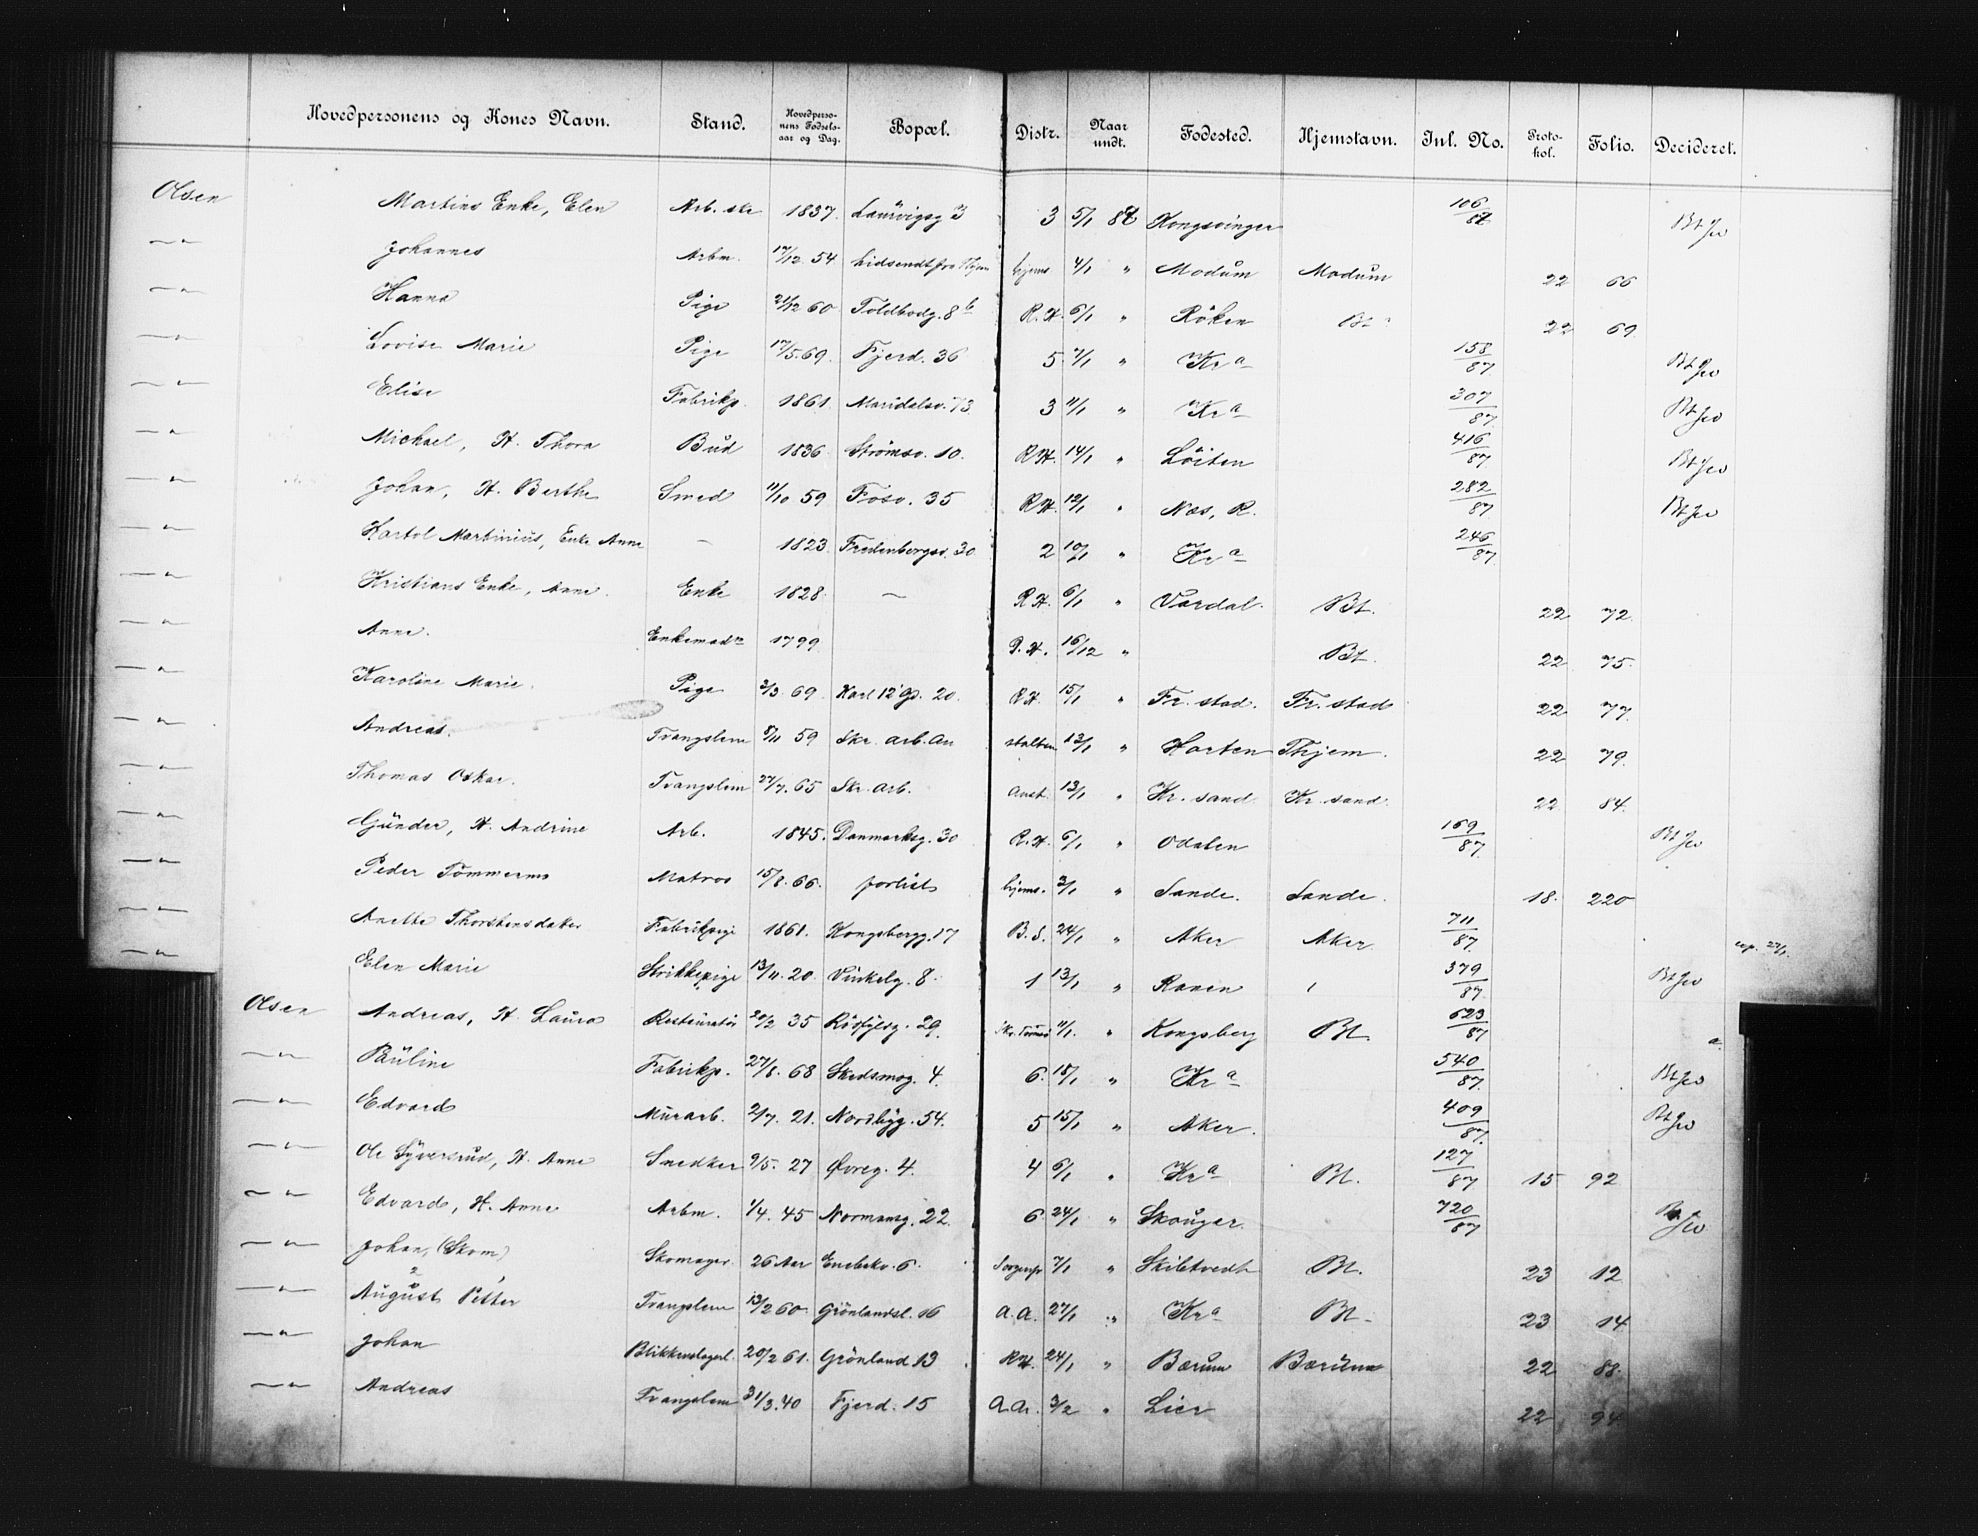 Hovedpersonens og Kones Navn. Stand. Hovedpersonens Fødselsaar og Dag. Bopæl. Distr. Naar undt. Fødested. Hjemstavn. Inl. No. Protokol. Folio. Decideret.
Olsen Martins Enke, Elen Arb. ske 1837. Laurvigsg 3 3 5/1 87 Kongsvinger 106/87 Bt Jo
—"— Johannes Arbm. 17/12 54 hidsendt fra Hjem hjems 4/1 " Modum Modum 22 66
—"— Hanna Pige 21/12 60 Toldbodg. 8 b R.H. 6/1 " Röken Bt 22 69
—"— Lovise Marie Pige 17/5. 69. Fjerd. 36 5 7/1 " Kr a 158/87 Bt Jo
—"— Elise Fabrikp. 1861. Maridalsv. 73 3 11/1 " Kr a 307/87 Bt Jo
—"— Michael, H. Thora Bud 1836 Strömsv. 10. R.H. 14/1 " Löiten 416/87 Bt Jo
—"— Johan, H. Berthe Smed 11/10 59 Fosv. 35 R.H. 12/1 " Næs, R. 282/87 Bt Jo
—"— Martinius, Enke Anne — 1823. Fredenborgsv. 30 2 10/1 " Kr a 246/87
—"— Kristians Enke, Anne. Enke 1828. — R.H. 6/1 " Vardal. Bt. 22 72
—"— Anne. Enkemad 1799 R.H. 16/12 " Bt. 22 75.
—"— Karoline Marie. Pige 2/3 69. Karl 12 Gd. 20. R.H. 15/1 " Fr. stad. Fr. stad 22 77.
—"— Andreas. Tvangslem 8/11 59 Skr. arb. an stalten 13/1 " Horten Thjem. 22 79.
—"— Thomas Oskar. Tvangslem 27/7. 65 Skr. arb. anst. 13/1 " Kr. sand Kr. sand. 22 84.
—"— Gunder, H. Andrine Arb. 1845. Danmarksg. 30 R.H. 6/1 " Odalen 169/87. Bt Jo
—"— Peder Tömmermo Matros 15/8. 66. forlist hjems. 3/1 " Sande. Sande. 18. 220
—"— Anette Thorstensdatter Fabrikpige 1861. Kongsbergg. 17 B.S. 24/1 " Aker Aker 711/87. 27/1
—"— Elen Marie Strikkepige 13/11. 20. Vinkelg. 8. 1 13/1 " Ranen 379/87. Bt Jo
Olsen Andreas, H. Laura Restauratör 20/2 35 29. 11/1. " Kongsberg Bt. 623/87 a.
—"— Pauline Fabrikp. 27/8. 68 Skedsmog. 4. 6. 15/1 " Kr a 540/87. Bt Jo
—"— Edvard Murarb. 2/7. 21. Nordbyg. 54. 5 15/1 " Aker. 409/87. Bt Jo
—"— Ole Syversrud, H. Anne Snedker 9/5. 27 Øvreg. 4. 4 6/1 " Kr a Bt. 127/87 15 92
—"— Edvard, H. Anne Arbm. 1/4. 45 Normannsg. 22. 6. 24/1 " Skouger. 720/87 Jo
—"— Johan, (Skom) Skomager 26 Aar Enebakv. 6. 7/1 " Skibtvedt Bt. 23 12
—"— August Petter Tvangslem 13/2 60. Grönlandsl. 16 a.a. 27/1 " Kr a Bt. 23 14
—"— Johan Blikkenslagerl. 20/2 61. Grönland 13 R.H. 24/1 " Bærum Bærum 22 88.
—"— Andreas Tvangslem 31/3. 40 Fjerd. 15 a.a. 3/2 " Lier 22 94